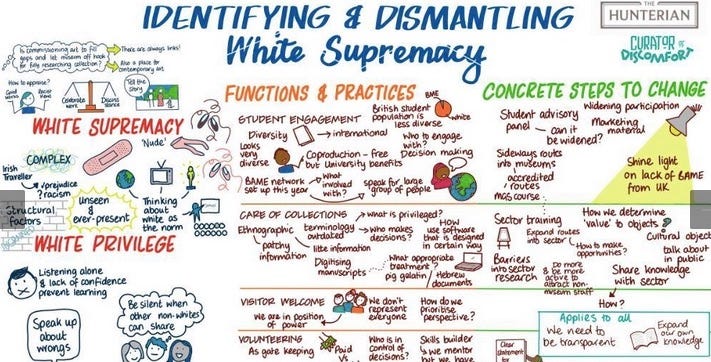 IDENTIFYING & DISMANTLING
White Supremacy
THE
HUNTERIAN
CURATOR OF
DISCOMFORT
Is commissioning art to fill
gaps and let museum off hook
for fully researching collection?
There are always links!
Also a place for
contemporary art
How to appraise?
Good
Celebrate
Tell the
story
WHITE SUPREMACY
'Nude'
COMPLEX
Irish
Traveller
prejudice
? racism
Structural
factors
unseen
& ever-present
Thinking
about
white as
the norm
WHITE PRIVILEGE
Listening alone
& lack of confidence
prevent learning
Speak up
about
wrongs
Be silent when
other non-whites
can share
FUNCTIONS & PRACTICES
STUDENT ENGAGEMENT
British student
population is
less diverse
BME
white
Diversity
international
Looks
very
diverse
Who to engage
with?
Decision making
Coproduction - free
but University benefits
BAME network
set up this year
What
involved
with?
speak for large
group of people
CARE OF COLLECTIONS
what is privileged?
Ethnographic
terminology
outdated
Who makes
decisions?
How
use software
that is designed
in certain way
patchy
information
little information
Digitising
manuscripts
What appropriate
treatment?
pig gelatin
Hebrew
documents
VISITOR WELCOME
We are in position
of power
We don't
represent
everyone
How do we
prioritise
perspective?
VOLUNTEERING
As gate keeping
Paid
Vs
Who is in
control of
decisions?
Skills builder
we mentor
but we have
CONCRETE STEPS TO CHANGE
Student advisory
panel
can it
be widened?
Widening participation
Marketing
material
Sideways routes
into museums
accredited
routes
mgs course
Shine light
on lack of BAME
from UK
Sector training
Expand routes
into sector
How we determine
'value' to objects?
How to make
opportunities?
Cultural object
talk about
in public
Barriers
into sector
research
Do more
& be more
active to
attract non-
museum staff
Share knowledge
with sector
How?
Applies to all
We need to
be transparent
Expand
our own
knowledge
Clear
statement